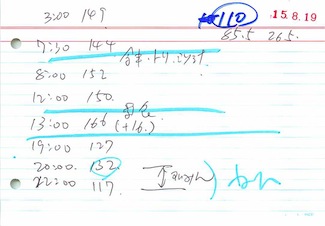 3:00 149
110
15.8.19
85.5 26.5
7:30 144
8:00 152
12:00 150
昼食
13:00 166 (+16)
19:00 127
20:00 132
22:00 117